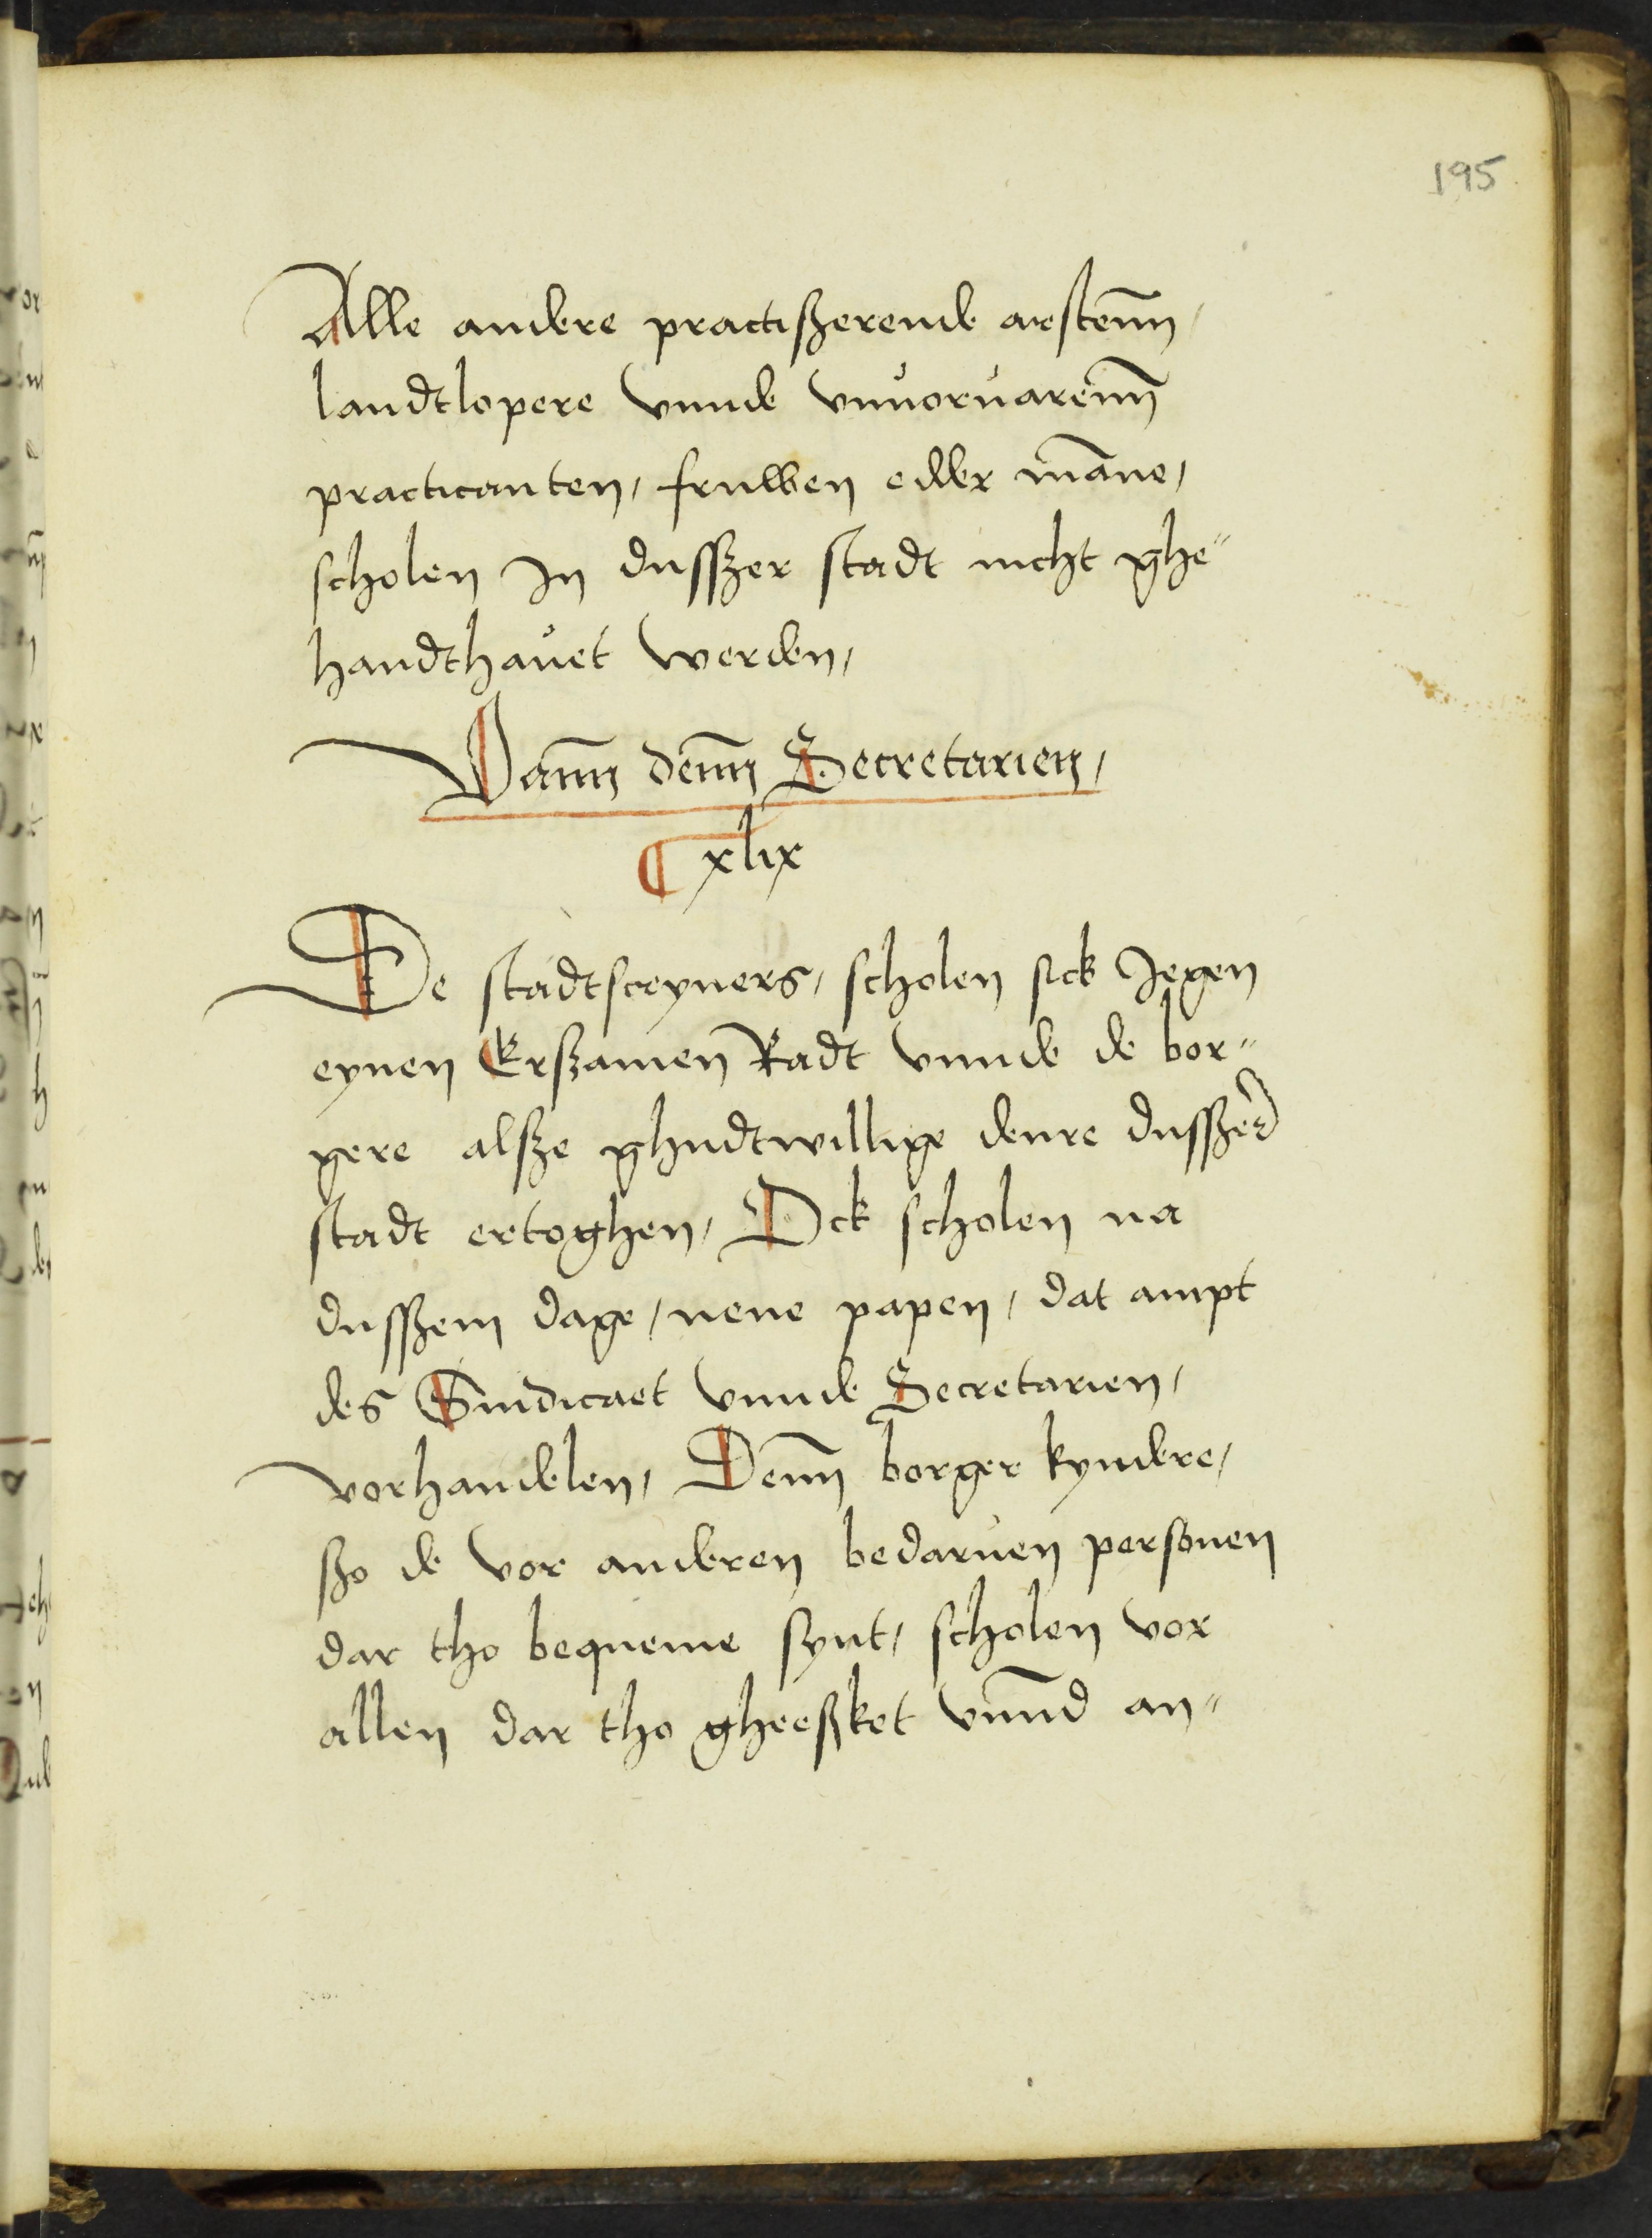 195
Alle andere practiszerende arstenn̄,
landtlopere vnnde vnuoruarenn̄
practicanten, fruwen edder māne,
scholen In dusszer stadt nicht ghe-
handthauet werden,
Vann̄ denn̄ Secretarien,
¶ xlix
De stadtscryuers, scholen sick Jegen
eynen Erszamen Radt vnnde de bor-
gere alsze ghudtwillige denre dusszer
stadt ertoghen, Ock scholen na
dusszem dage, nene papen, dat ampt
des Sindicaet vnnde Secretarien,
vorhandelen, Denn̄ borger kyndere,
szo de vor anderen bedaruen personen
dar tho bequeme synt, scholen vor
allen dar tho gheesket vnnd an-